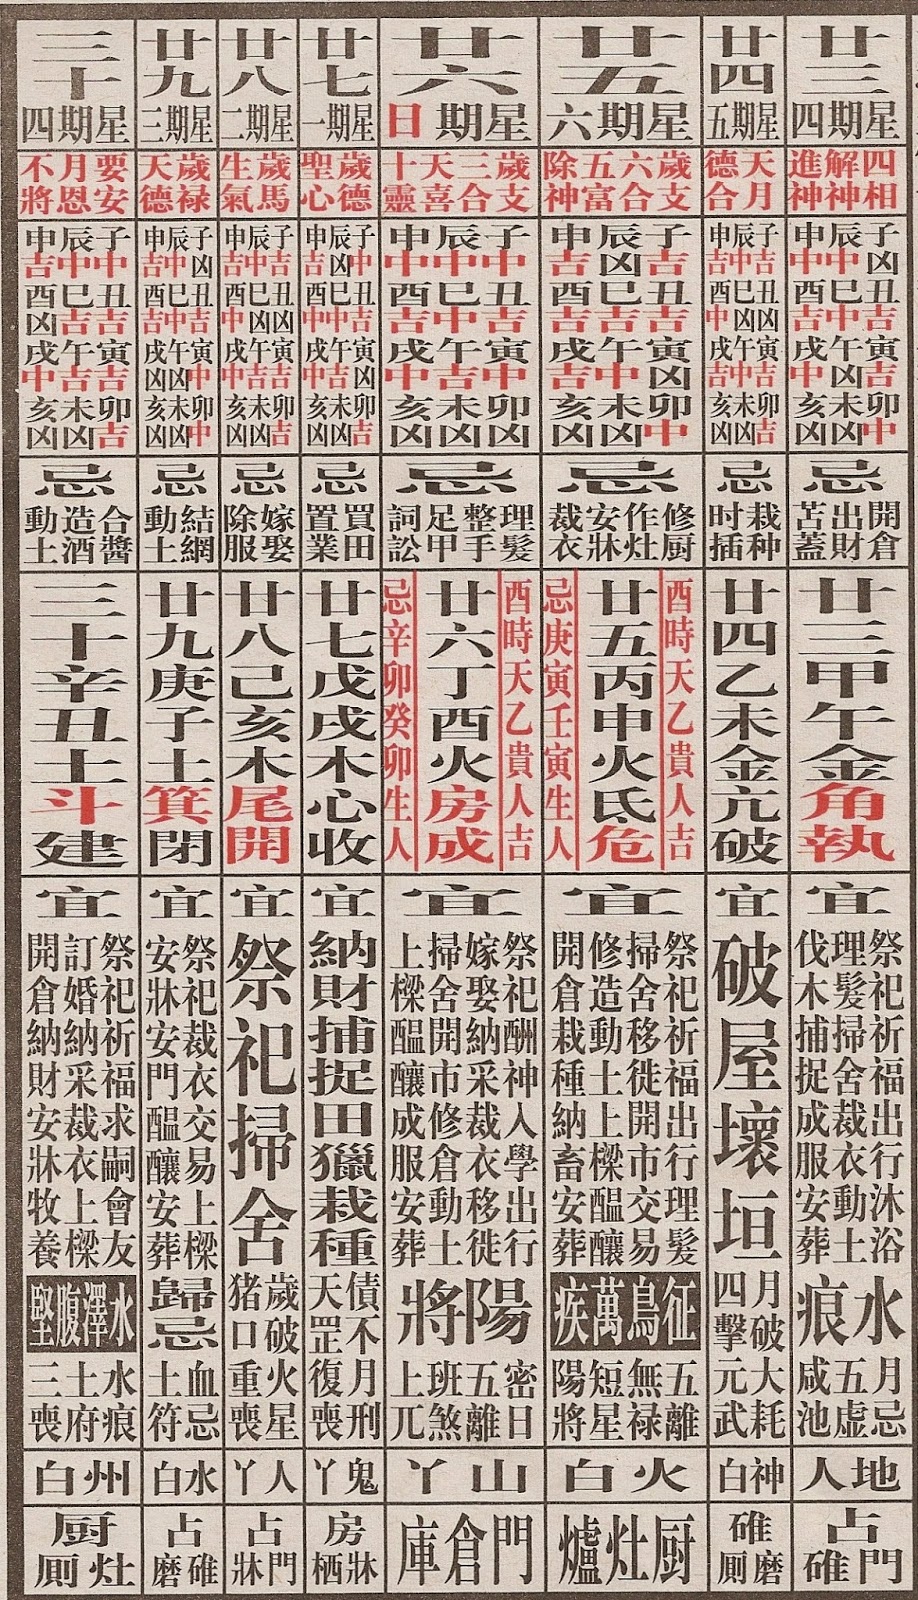 廿三
星期四
四相
解神
進神
子凶辰中申中
丑吉巳中酉吉
寅吉午凶戌中
卯中未凶亥凶
忌
開倉
出財
苫蓋
廿三甲午金角執
宜
祭祀祈福出行沐浴
理髮掃舍裁衣動土
伐木捕捉成服安葬
水痕
月忌
五虛
咸池
地人
占門碓
廿四
星期五
天月
德合
子吉辰中申吉
丑凶巳凶酉中
寅吉午中戌吉
卯吉未凶亥凶
忌
栽种
时插
廿四乙未金亢破
宜
破屋壞垣
月破大耗
四擊元武
神白
碓磨厠
廿五
星期六
歲支
六合
五富
除神
子吉辰凶申吉
丑吉巳吉酉吉
寅凶午中戌吉
卯中未凶亥凶
忌
修厨
作灶
安牀
裁衣
酉時天乙貴人吉
廿五丙申火氐危
忌庚寅壬寅生人
宜
祭祀祈福出行理髮
掃舍移徙開市交易
修造動土上樑醞釀
開倉栽種納畜安葬
征鳥萬疾
五離
無禄
短星
陽將
火白
厨灶爐
廿六
星期日
歲支
三合
天喜
十靈
子中辰中申中
丑吉巳中酉吉
寅中午吉戌中
卯凶未凶亥凶
忌
理髮
整手
足甲
詞訟
酉時天乙貴人吉
廿六丁酉火房成
忌辛卯癸卯生人
宜
祭祀酬神入學出行
嫁娶納采裁衣移徙
掃舍開市修倉動土
上樑醞釀成服安葬
陽將
密日
五離
班煞
上兀
山丫
門倉庫
廿七
星期一
歲德
聖心
子中辰凶申吉
丑吉巳中酉中
寅凶午吉戌中
卯吉未凶亥凶
忌
買田
置業
廿七戊戌木心收
宜
納財捕捉田獵栽種
債不月刑
天罡復喪
鬼丫
房牀栖
廿八
星期二
歲馬
生氣
子吉辰中申吉
丑凶巳凶酉中
寅吉午吉戌中
卯吉未凶亥凶
忌
嫁娶
除服
廿八己亥木尾開
宜
祭祀掃舍
歲破火星
猪口重喪
人丫
占門牀
廿九
星期三
歲禄
天德
子凶辰中申吉
丑吉巳中酉吉
寅中午凶戌凶
卯中未凶亥凶
忌
結網
動土
廿九庚子土箕閉
宜
祭祀裁衣交易上樑
安牀安門醞釀安葬
歸忌
血忌
土符
水白
占碓磨
三十
星期四
要安
月恩
不將
子中辰中申吉
丑吉巳吉酉凶
寅吉午吉戌中
卯吉未凶亥凶
忌
合醬
造酒
動土
三十辛丑土斗建
宜
祭祀祈福求嗣會友
訂婚納采裁衣上樑
開倉納財安牀牧養
水澤腹堅
水痕
土府
三喪
州白
厨灶厠